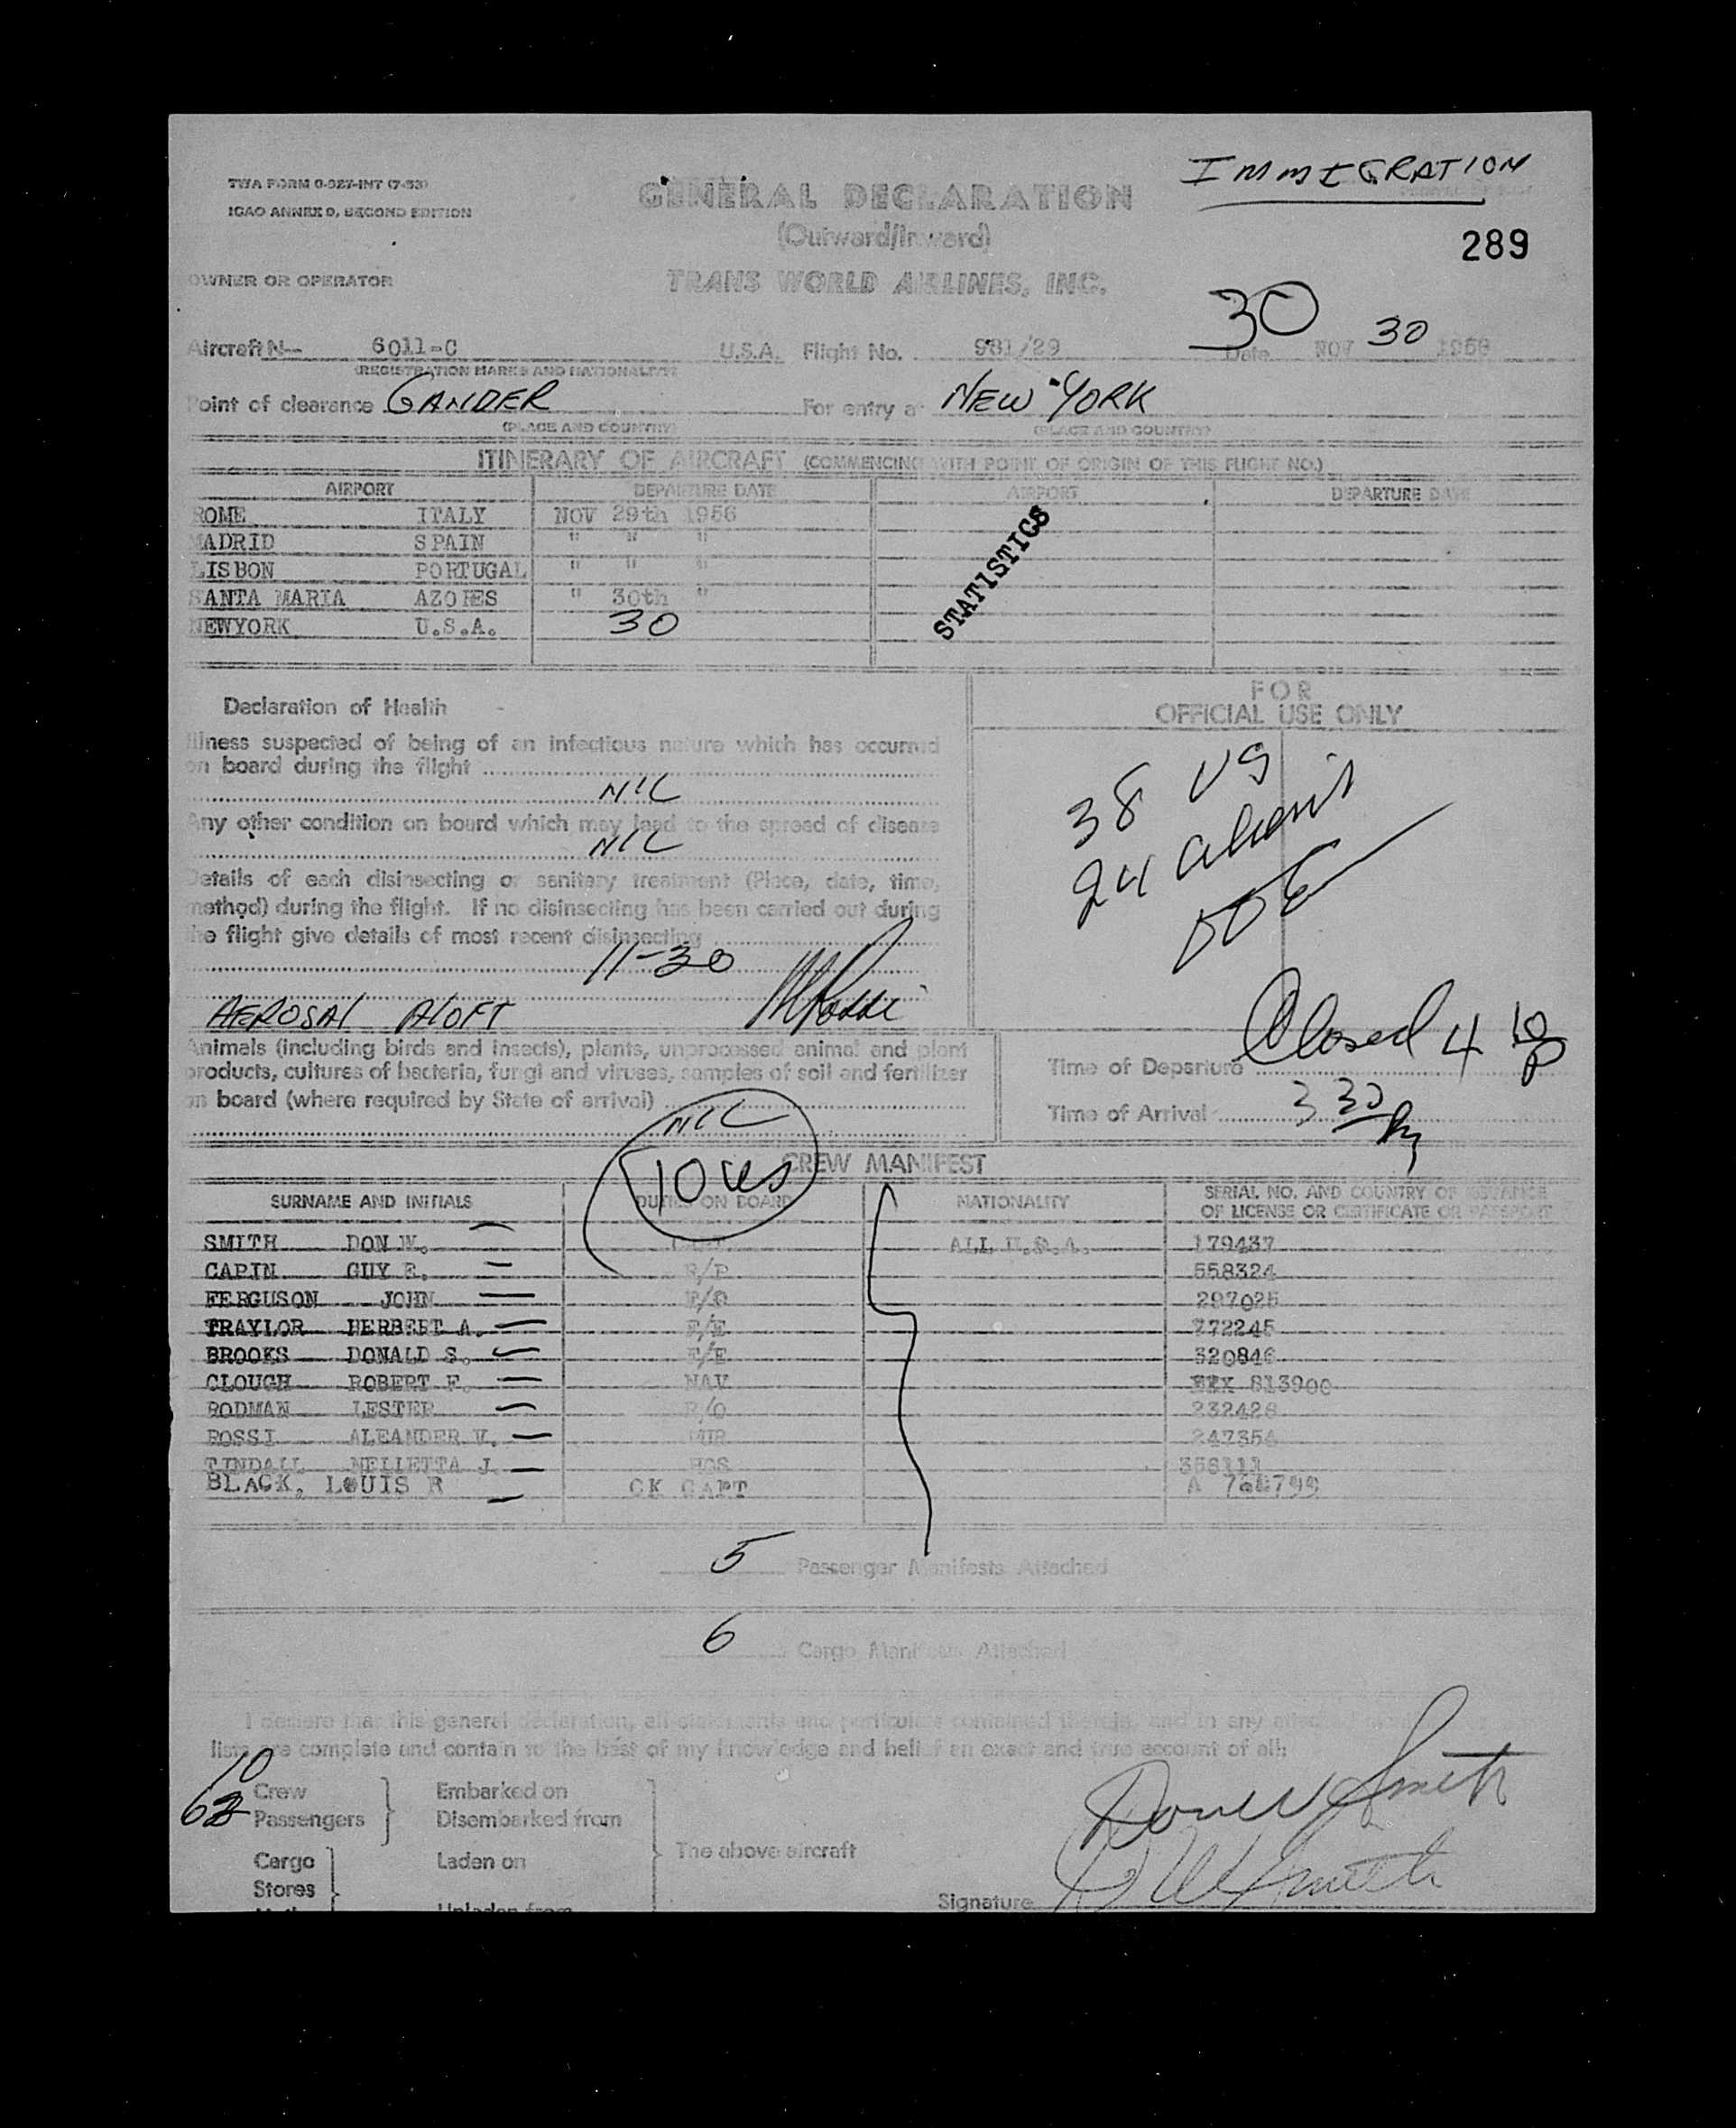 IMMIGRATION
TWA FORM 0-327-INT (7-53)
GENERAL DECLARATION
ICAO ANNEX 9, SECOND EDITION
(Outward/Inward)
289
OWNER OR OPERATOR
TRANS WORLD AIRLINES, INC.
30
Aircraft N— 6011-C U.S.A. Flight No. 981/29 Date NOV 30 1956
(REGISTRATION MARKS AND NATIONALITY)
Point of clearance GANDER For entry at NEW YORK
(PLACE AND COUNTRY) (PLACE AND COUNTRY)
ITINERARY OF AIRCRAFT (COMMENCING WITH POINT OF ORIGIN OF THIS FLIGHT NO.)
AIRPORT DEPARTURE DATE AIRPORT DEPARTURE DATE
ROME ITALY NOV 29th 1956
MADRID SPAIN " " "
LISBON PORTUGAL " " "
SANTA MARIA AZORES " 30th "
NEWYORK U.S.A. 30
STATISTICS
Declaration of Health
Illness suspected of being of an infectious nature which has occurred
on board during the flight
NIL
Any other condition on board which may lead to the spread of disease
NIL
Details of each disinsecting or sanitary treatment (Place, date, time,
method) during the flight. If no disinsecting has been carried out during
the flight give details of most recent disinsecting
11-30
AEROSAL ALOFT
Rossi
Animals (including birds and insects), plants, unprocessed animal and plant
products, cultures of bacteria, fungi and viruses, samples of soil and fertilizer
on board (where required by State of arrival)
NIL
FOR
OFFICIAL USE ONLY
38 US
24 aliens
Time of Departure Closed 4 10 P
Time of Arrival 3 30 P
10 US
CREW MANIFEST
SURNAME AND INITIALS DUTIES ON BOARD NATIONALITY SERIAL NO. AND COUNTRY OF ISSUANCE
OF LICENSE OR CERTIFICATE OR PASSPORT
SMITH DON W. ALL U.S.A. 179437
CAPIN GUY E. 558324
FERGUSON JOHN F/O 297025
TRAYLOR HERBERT A. F/E 772245
BROOKS DONALD S. F/E 320846
CLOUGH ROBERT F. NAV 813900
RODMAN LESTER R/O 232428
ROSSI ALEANDER V. 247354
TINDALL NELLETTA J. HOS 358111
BLACK, LOUIS R CK CAPT A
5 Passenger Manifests Attached
6 Cargo Manifests Attached
I declare that this general declaration, all statements and particulars contained therein, and in any
lists are complete and contain to the best of my knowledge and belief an exact and true account of all:
10 Crew Embarked on
62 Passengers Disembarked from
The above aircraft
Cargo Laden on
Stores
Unladen from
Don W Smith
Signature D W Smith